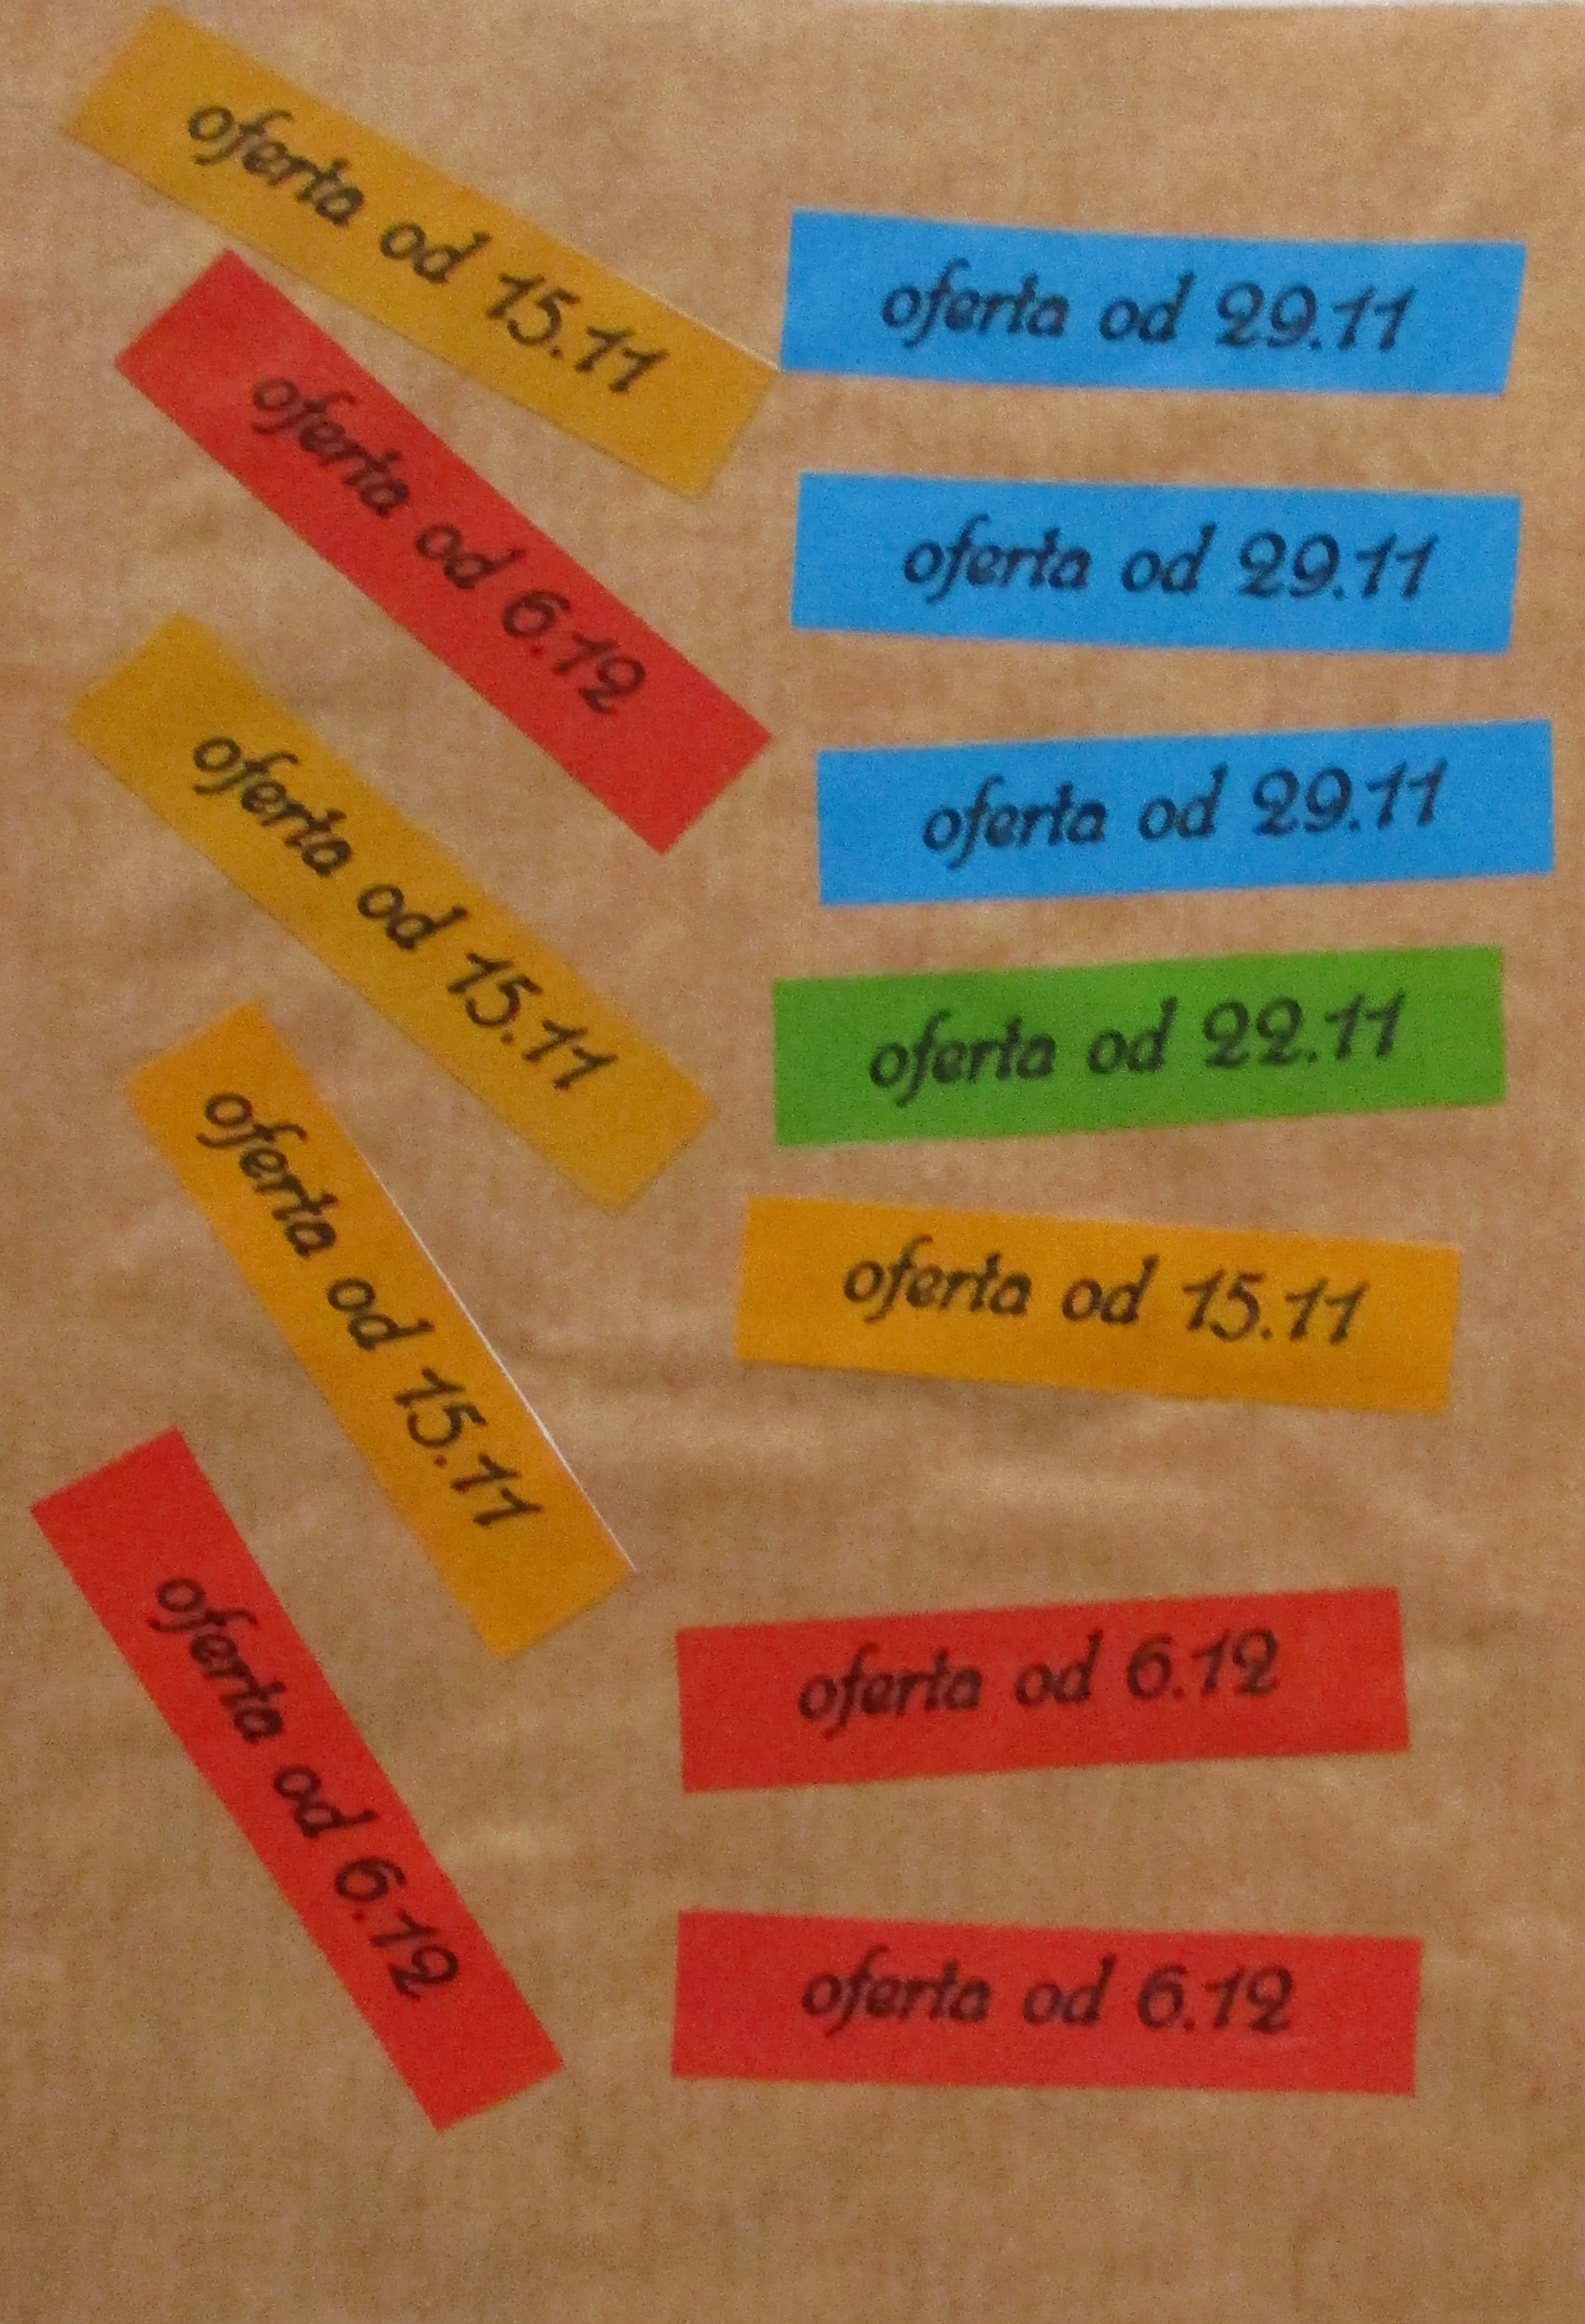 oferta od 15.11
oferta od 6.12
oferta od 15.11
oferta od 15.11
oferta od 6.12
oferta od 29.11
oferta od 29.11
oferta od 29.11
oferta od 22.11
oferta od 15.11
oferta od 6.12
oferta od 6.12